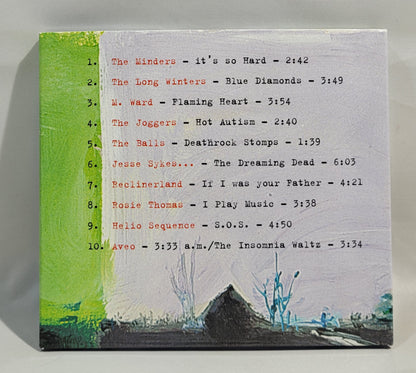 1. The Minders - it's so Hard - 2:42
2. The Long Winters - Blue Diamonds - 3:49
3. M. Ward - Flaming Heart - 3:54
4. The Joggers - Hot Autism - 2:40
5. The Balls - Deathrock Stomps - 1:39
6. Jesse Sykes... - The Dreaming Dead - 6:03
7. Reclinerland - If I was your Father - 4:21
8. Rosie Thomas - I Play Music - 3:38
9. Helio Sequence - S.O.S. - 4:50
10. Aveo - 3:33 a.m./The Insomnia Waltz - 3:34